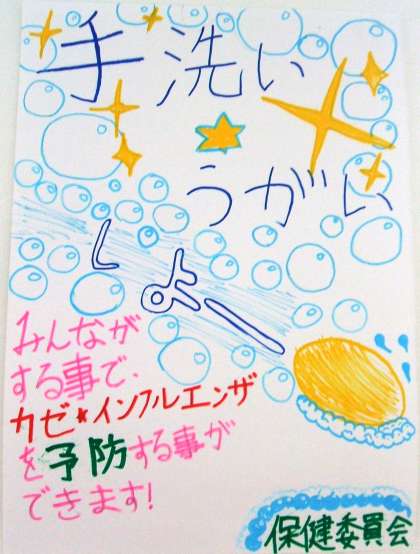 手洗い
うがい
しよー
みんなが
する事で、
カゼ★インフルエンザ
を予防する事が
できます!
保健委員会